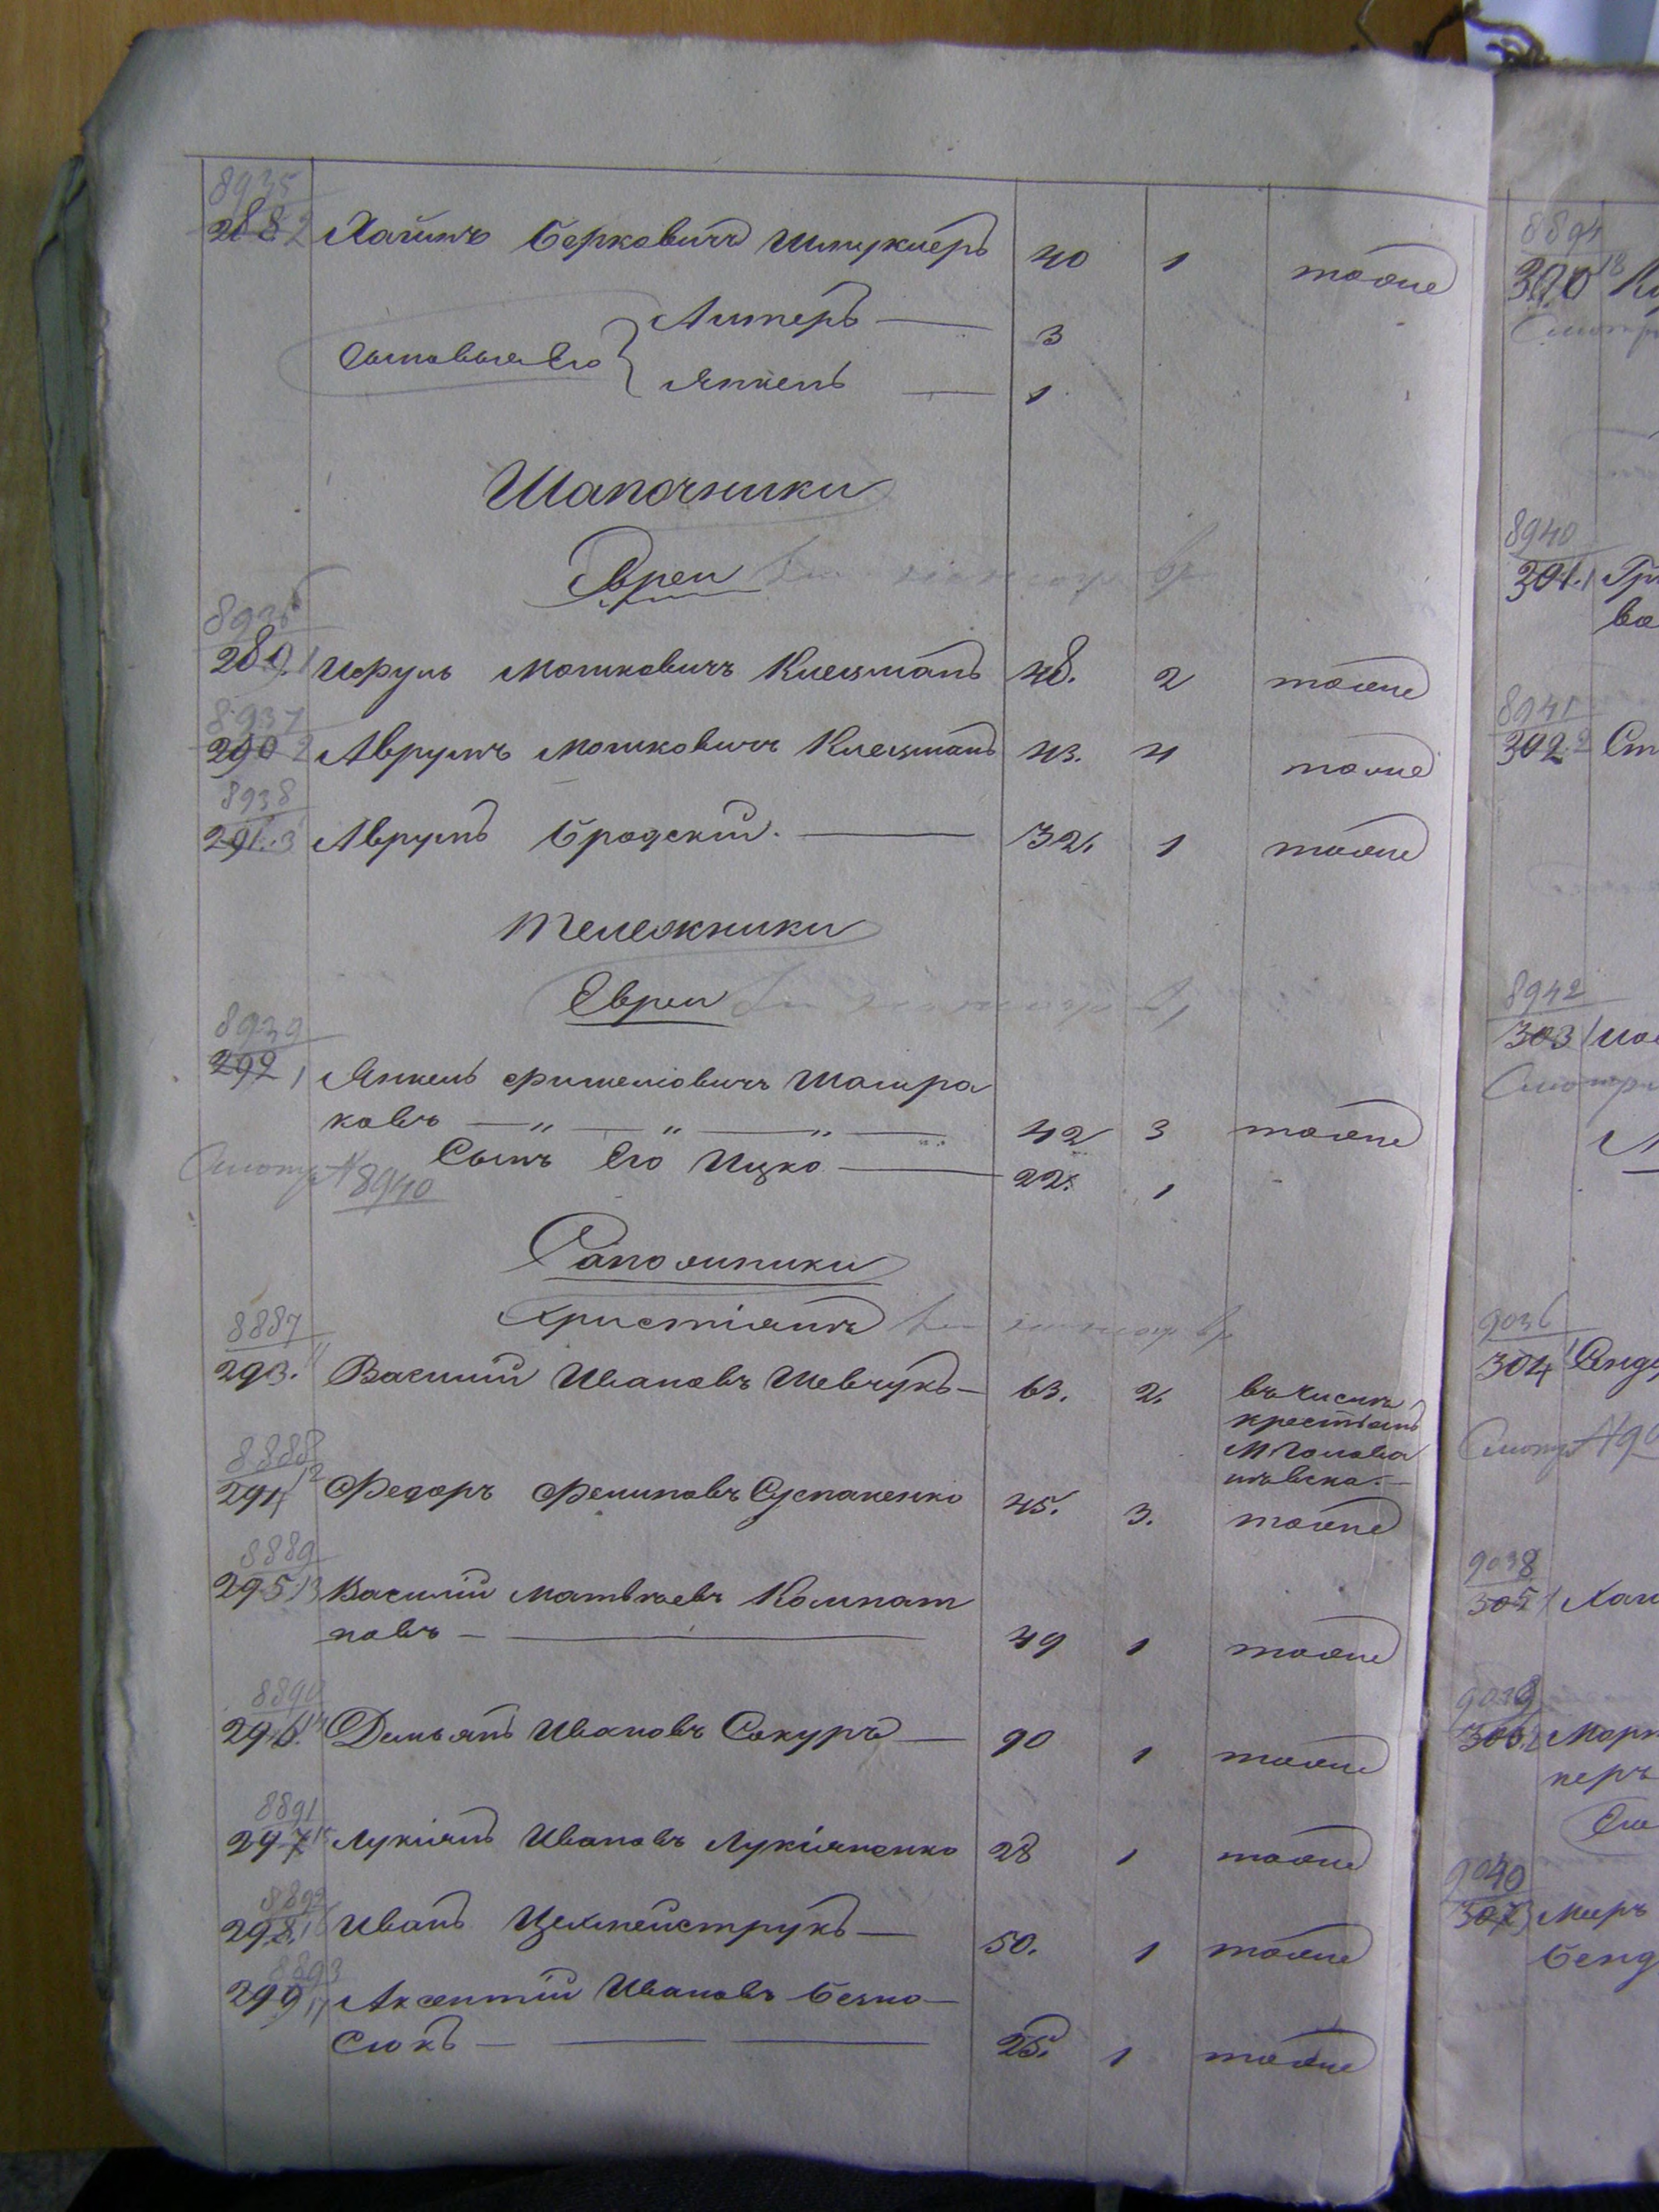 8935
288. 2 Хаимъ Берковичъ Шмуклеръ 40 1 тоже
Сыновья Его { Алтеръ — 3
Янкель — 1
Шапочники
Евреи
8936
289. 1 Исруль Мошковичъ Клейзманъ 48. 2 тоже
8937
290 2 Аврумъ Мошковичъ Клейзманъ 43. 4 тоже
8938
291. 3 Аврумъ Бродскій. — 32. 1 тоже
Тележники
Евреи
8939
292 1 Янкель Фишелiовичъ Шапиро
ковъ — " — " — " — 42 3 тоже
Сынъ Его Ицко — 22. 1
Смотр № 8940
Сапожники
Христіянъ
8887
293. 11 Василий Ивановъ Шевчукъ — 63. 2. въ числѣ
крестьянъ
М Голова
нѣвска. —
8888
294 12 Федоръ Филиповъ Сурпаненко 45. 3. тоже
8889
295 13 Василій Матвѣевъ Колпат
новъ — 49 1 тоже
8890
296. 14 Демьянъ Ивановъ Сокуръ — 90 1 тоже
8891
297 15 Лукіянъ Ивановъ Лукіяненко 28 1 тоже
8892
298. 16 Иванъ Цехмейструкъ — 50. 1 тоже
8893
299 17 Аксентій Ивановъ Безно-
сюкъ — 25. 1 тоже
8894
300 18
8940
301. 1 Гри
ва
8941
302. 2 Ст
8942
303 1
9036
304 1
9038
305 1 Хаи
9039
306. 2 Морт
керъ
9040
307 3 Меръ
Бенд